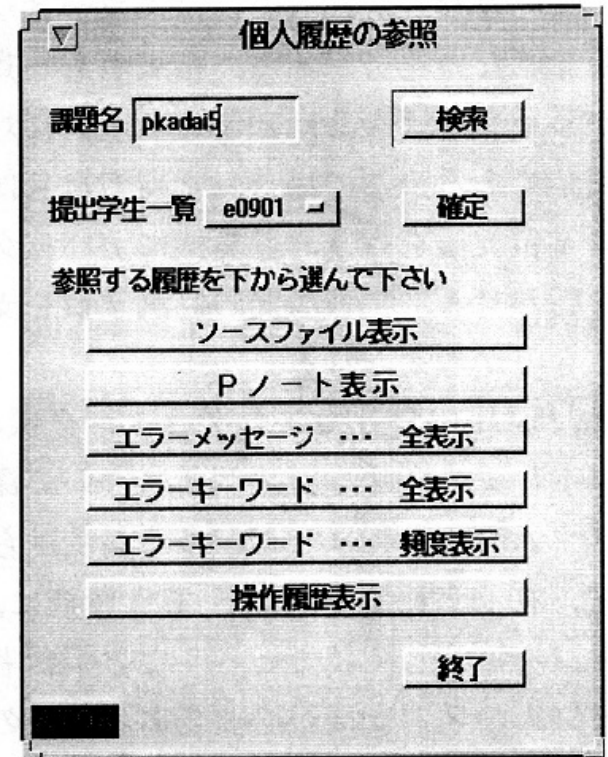 個人履歴の参照
課題名 pkadai5 検索
提出学生一覧 e0901 確定
参照する履歴を下から選んで下さい
ソースファイル表示
Pノート表示
エラーメッセージ … 全表示
エラーキーワード … 全表示
エラーキーワード … 頻度表示
操作履歴表示
終了